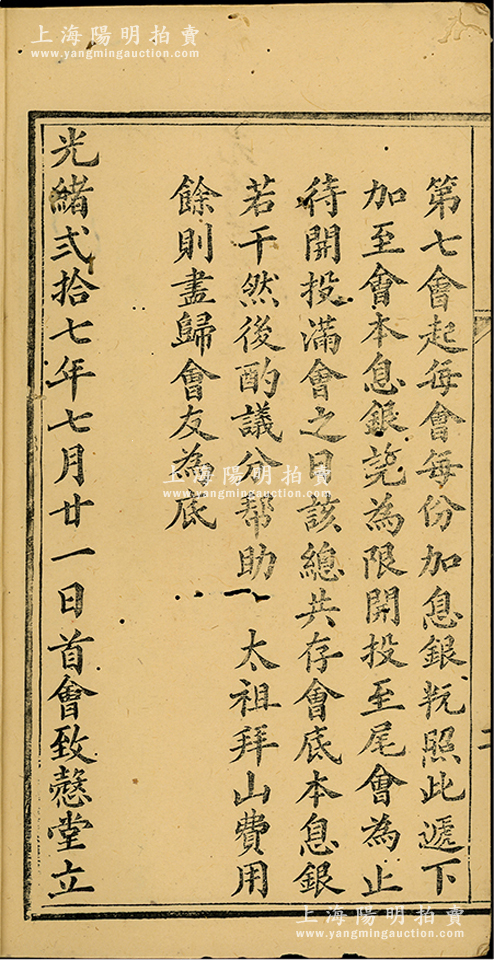 第七會起每會每份加息銀
照此遞下
加至會本息銀
為限開投至尾會為止
待開投滿會之日該總共存會底本息銀
若干然後酌議分幫助 太祖拜山費用
餘則盡歸會友為底
光緒弍拾七年七月廿一日首會致慤堂立
二
上海陽明拍賣
www.yangmingauction.com
上海陽明拍賣
www.yangmingauction.com
上海陽明拍賣
www.yangmingauction.com